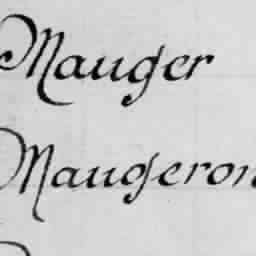 Mauger
Maugeron